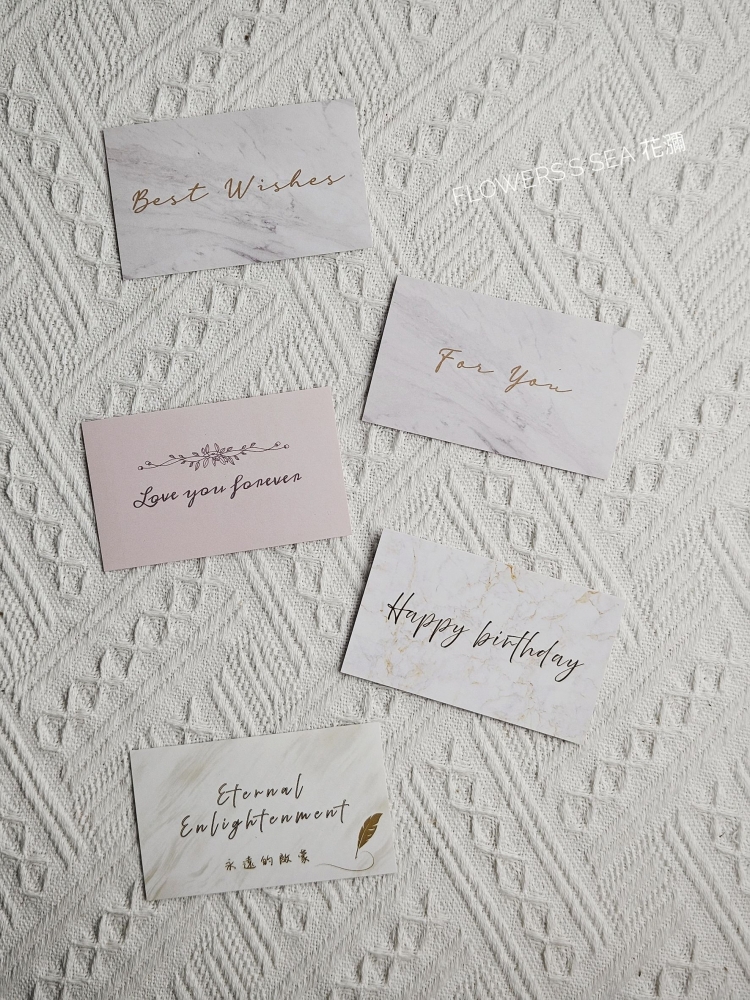 Best Wishes
FLOWERS'S SEA 花瀰
For You
Love you forever
Happy birthday
Eternal
Enlightenment
永遠的啟蒙